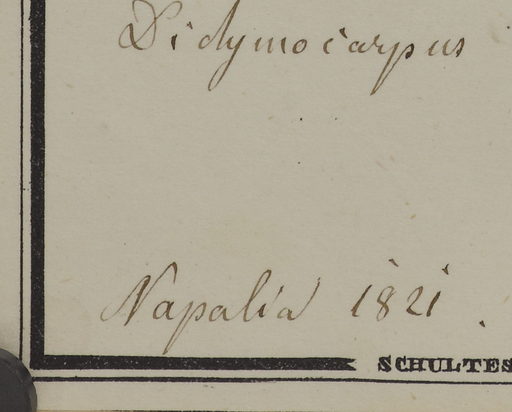 Didymocarpus
Napalia 1821.
SCHULTES